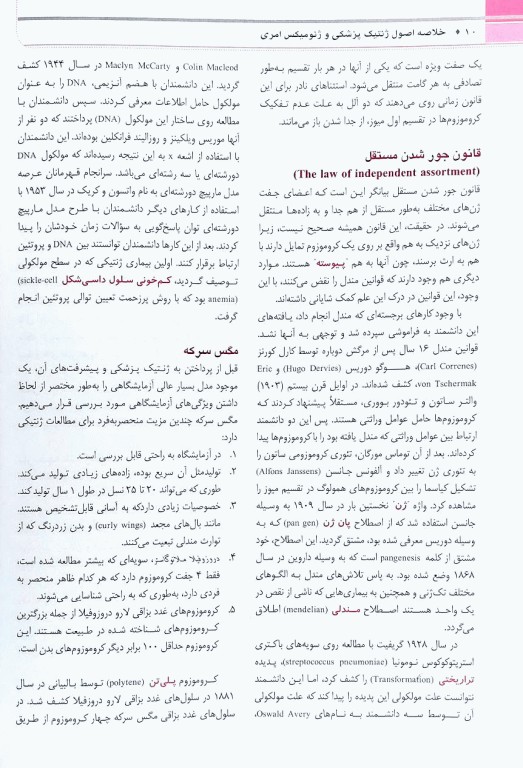 ۱۰ ♦ خلاصه اصول ژنتیک پزشکی و ژنومیکس امری
یک صفت ویژه است که یکی از آنها در هر بار تقسیم به‌طور
تصادفی به هر گامت منتقل می‌شود. استثناهای نادر برای این
قانون زمانی روی می‌دهند که دو آلل به علت عدم تفکیک
کروموزوم‌ها در تقسیم اول میوز، از جدا شدن باز می‌مانند.
قانون جور شدن مستقل
(The law of independent assortment)
قانون جور شدن مستقل بیانگر این است که اعضای جفت
ژن‌های مختلف به‌طور مستقل از هم جدا و به زاده‌ها منتقل
می‌شوند. در حقیقت، این قانون همیشه صحیح نیست، زیرا
ژن‌های نزدیک به هم واقع بر روی یک کروموزوم تمایل دارند با
هم به ارث برسند، چون آنها به هم "پیوسته" هستند. موارد
دیگری هم وجود دارند که قوانین مندل را نقض می‌کنند، با این
وجود، این قوانین در درک این علم کمک شایانی داشته‌اند.
با وجود کارهای برجسته‌ای که مندل انجام داد، یافته‌های
این دانشمند به فراموشی سپرده شد و توجهی به آنها نشد.
قوانین مندل ۱۶ سال پس از مرگش دوباره توسط کارل کورنز
(Carl Correncs)، هـوگو دوریس (Hugo Dervies) و Eric
von Tschermak، کشف شده‌اند. در اوایل قرن بیستم (۱۹۰۳)
والتر ساتون و تئودور بووری، مستقلاً پیشنهاد کردند که
کروموزوم‌ها حامل عوامل وراثتی هستند. پس این دو دانشمند
ارتباط بین عوامل وراثتی که مندل یافته بود را با کروموزوم‌ها پیدا
کرده‌اند. بعد از آن توماس مورگان، تئوری کروموزومی ساتون را
به تئوری ژن تغییر داد و آلفونس جانسن (Alfons Janssens)
تشکیل کیاسما را بین کروموزوم‌های همولوگ در تقسیم میوز را
مشاهده کرد. واژه "ژن" نخستین بار در سال ۱۹۰۹ به وسیله
جانسن استفاده شد که از اصطلاح پان ژن (pan gen) که به
وسیله دوریس معرفی شده بود، مشتق گردید. این اصطلاح، خود
مشتق از کلمه pangenesis است که به وسیله داروین در سال
۱۸۶۸ وضع شده بود. به پاس تلاش‌های مندل به الگوهای
مختلف تک‌ژنی و همچنین به بیماری‌هایی که ناشی از نقص در
یک واحد هستند اصطلاح مندلی (mendelian) اطلاق
می‌گردد.
در سال ۱۹۲۸ گریفیت با مطالعه روی سویه‌های باکتری
استرپتوکوکوس نومونیا (streptococcus pneumoniae)، پدیده
تراریختی (Transformation) را کشف کرد، اما این دانشمند
نتوانست علت مولکولی این پدیده را پیدا کند که علت مولکولی
آن توسط سه دانشمند به نام‌های Oswald Avery،
Colin Macleod و Maclyn McCarty در سال ۱۹۴۴ کشف
گردید. این دانشمندان با هضم آنزیمی، DNA را به عنوان
مولکول حامل اطلاعات معرفی کردند. سپس دانشمندان با
مطالعه روی ساختار این مولکول (DNA) پرداختند که دو نفر از
آنها موریس ویلکینز و روزالیند فرانکلین بوده‌اند. این دانشمندان
با استفاده از اشعه x به این نتیجه رسیده‌اند که مولکول DNA
دورشته‌ای یا سه رشته‌ای می‌باشد. سرانجام قهرمانان عرصه
مدل مارپیچ دورشته‌ای به نام واتسون و کریک در سال ۱۹۵۳ با
استفاده از کارهای دیگر دانشمندان با طرح مدل مارپیچ
دورشته‌ای توان پاسخ‌گویی به سؤالات زمان خودشان را پیدا
کردند. بعد از این کارها دانشمندان توانستند بین DNA و پروتئین
ارتباط برقرار کنند. اولین بیماری ژنتیکی که در سطح مولکولی
توصیف گردید، کم‌خونی سلول داسی‌شکل (sickle-cell
anemia) بود که با روش پرزحمت تعیین توالی پروتئین انجام
گرفت.
مگس سرکه
قبل از پرداختن به ژنتیک پزشکی و پیشرفت‌های آن، یک
موجود مدل بسیار عالی آزمایشگاهی را به‌طور مختصر از لحاظ
داشتن ویژگی‌های آزمایشگاهی مورد بررسی قرار می‌دهیم.
مگس سرکه چندین مزیت منحصربه‌فرد برای مطالعات ژنتیکی
دارد:
۱. در آزمایشگاه به راحتی قابل بررسی است.
۲. تولیدمثل آن سریع بوده، زاده‌های زیادی تولید می‌کند.
طوری که می‌تواند ۲۰ تا ۲۵ نسل در طول ۱ سال تولید کند.
۳. خصوصیات زیادی دارد که به آسانی قابل تشخیص هستند.
مانند بال‌های مجعد (curly wings) و بدن زردرنگ که از
توارث مندلی تبعیت می‌کنند.
۴. دروزوفیلا ملانوگاستر، سویه‌ای که بیشتر مطالعه شده است،
فقط ۴ جفت کروموزوم دارد که هر کدام ظاهر منحصر به
فردی دارد، به‌طوری که به راحتی شناسایی می‌شوند.
۵. کروموزوم‌های غدد بزاقی لارو دروزوفیلا از جمله بزرگترین
کروموزوم‌های شناخته شده در طبیعت هستند. این
کروموزوم حداقل ۱۰۰ برابر دیگر کروموزوم‌های بدن است.
کروموزوم پلی‌تن (polytene) توسط بالبیانی در سال
۱۸۸۱ در سلول‌های غدد بزاقی لارو دروزفیلا کشف شد. در
سلول‌های غدد بزاقی مگس سرکه چهار کروموزوم از طریق